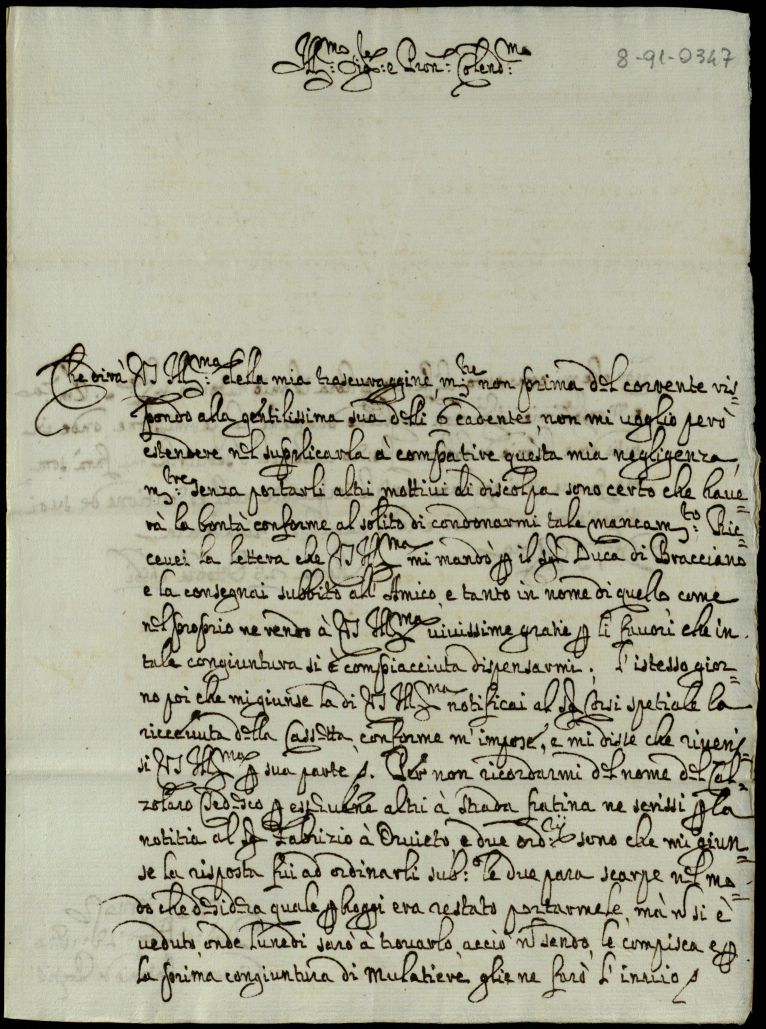 8-91-0347
Ill:mo Sig:re e Pron: Colend:mo
Che dirà VS Ill:ma della mia trascuraggine, m:tre non prima del corrente ris=
pondo alla gentilissima sua delli 6 cadente, non mi voglio però
estendere nel supplicarla à compatire questa mia negligenza,
m:tre senza portarli altri mottivi di discolpa sono certo che haue=
rà la bontà conforme al solito di condonarmi tale mancam:to: Ric=
ceuei la lettera che VS Ill:ma mi mandò p il sig Duca di Bracciano
e la consegnai subbito all' Amico, e tanto in nome di quello come
nel proprio ne rendo à VS Ill:ma uiuissime gratie p li fauori che in
tale congiuntura si è compiacciuta dispensarmi; l'istesso gior=
no poi che mi giunse la di VS Ill:ma notificai al sig Corsi spetiale la
riceuuta della Cassetta conforme m'impose, e mi disse che riueris=
si VS Ill:ma p sua parte. Per non ricordarmi del nome del Cal=
zolaro Tedesco p esseruene altri à strada fratina ne scrissi p la
notitia al sig Fabrizio à Oruieto e due ord:rij sono che mi giun=
se la risposta fui ad ordinarli sub:o le due para scarpe nel mo=
do che desidera quale p hoggi era restato portarmele, mà n si è
ueduto onde lunedi sarò à trouarlo, acciò n sendo, le compisca e p
la prima congiuntura di Mulatiere gliene farò l'inuio